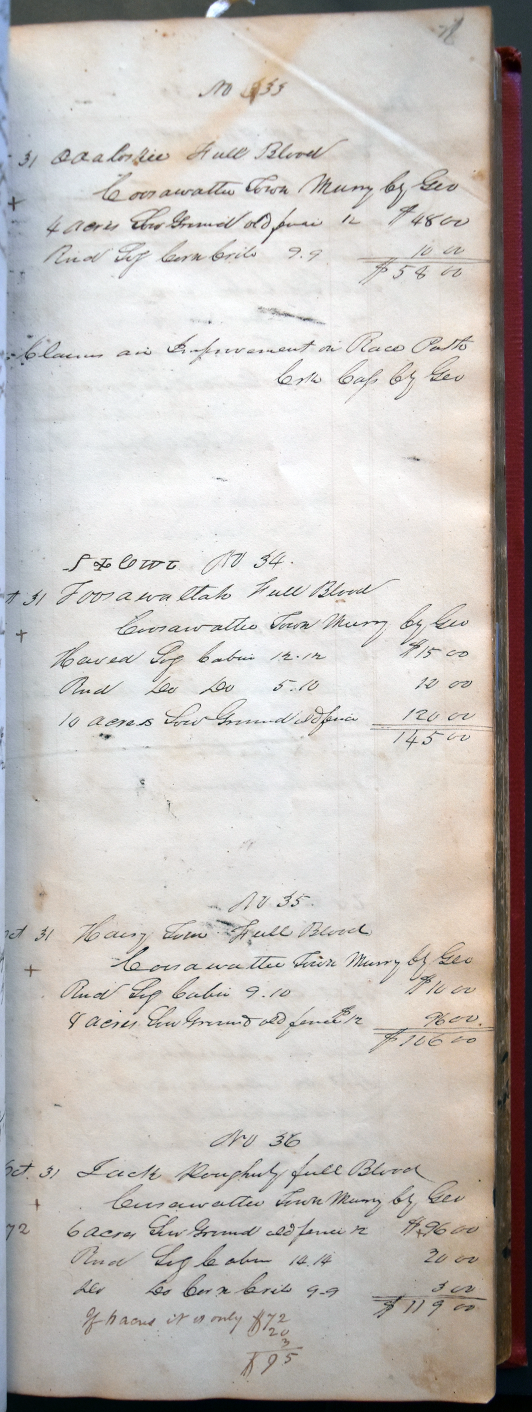 No 33
31 Oaaloskee Full Blood
Coosawattee Town Murry Cy Geo
+
4 acres Low Ground old fence 12 $48 00
Rnd Log Corn Crib 9.9 10 00
$58 00
Claims an Improvement on Race Path
Crk Cass Cy Geo
No 34.
31 Toosawaltah Full Blood
Coosawattee Town Murry Cy Geo
+
Hewed Log Cabin 12.12 $15 00
Rnd Do Do 5.10 10 00
10 acres Low Ground old fence 120 00
145 00
No 35
Oct 31 Hairy Tom Full Blood
Coosawattee Town Murry Cy Geo
+
Rnd Log Cabin 9.10 $10 00
8 acres Low Ground old fence $12 96 00.
$106 00
No 36
Oct. 31 Jack Doughuty full Blood
Coosawattee Town Murry Cy Geo
+
72 6 acres Low Ground old fence 12 $96 00
Rnd Log Cabin 14.14 20 00
Do Do Corn Crib 9-9 3 00
$119 00
If 6 acres it is only $72
20
3
$95